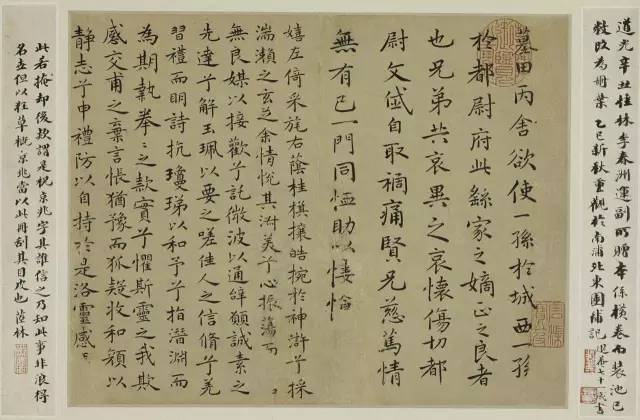 道光辛丑桂林李春洲運副所贈本係橫卷而裝池已
敝改為冊葉 乙巳新秋重觀於南浦北東園補記 退庵七十一歲書
墓田丙舍欲使一孫於城西一孫
於都尉府此繇家之嫡正之良者
也兄弟共哀異之哀懷傷切都
尉文岱自取禍痛賢兄慈篤情
無有已一門同恤助以悽愴
嬉左倚采旄右蔭桂棋攘皓捥於神滸兮採
湍瀨之玄芝余情悅其淑美兮心振蕩而
無良媒以接歡兮託微波以通辭願誠素之
先達兮解玉珮以要之嗟佳人之信脩兮羌
習禮而明詩抗瓊珶以和予兮指潛淵而
為期執拳〻之款實兮懼斯靈之我欺
感交甫之棄言悵猶豫而狐疑收和顏以
靜志兮申禮防以自持於是洛靈感
此若掩却後款謂是祝京兆字其誰信之乃知此事非浪得
名但以狂草概京兆當以此冊刮其目皮也 茝林